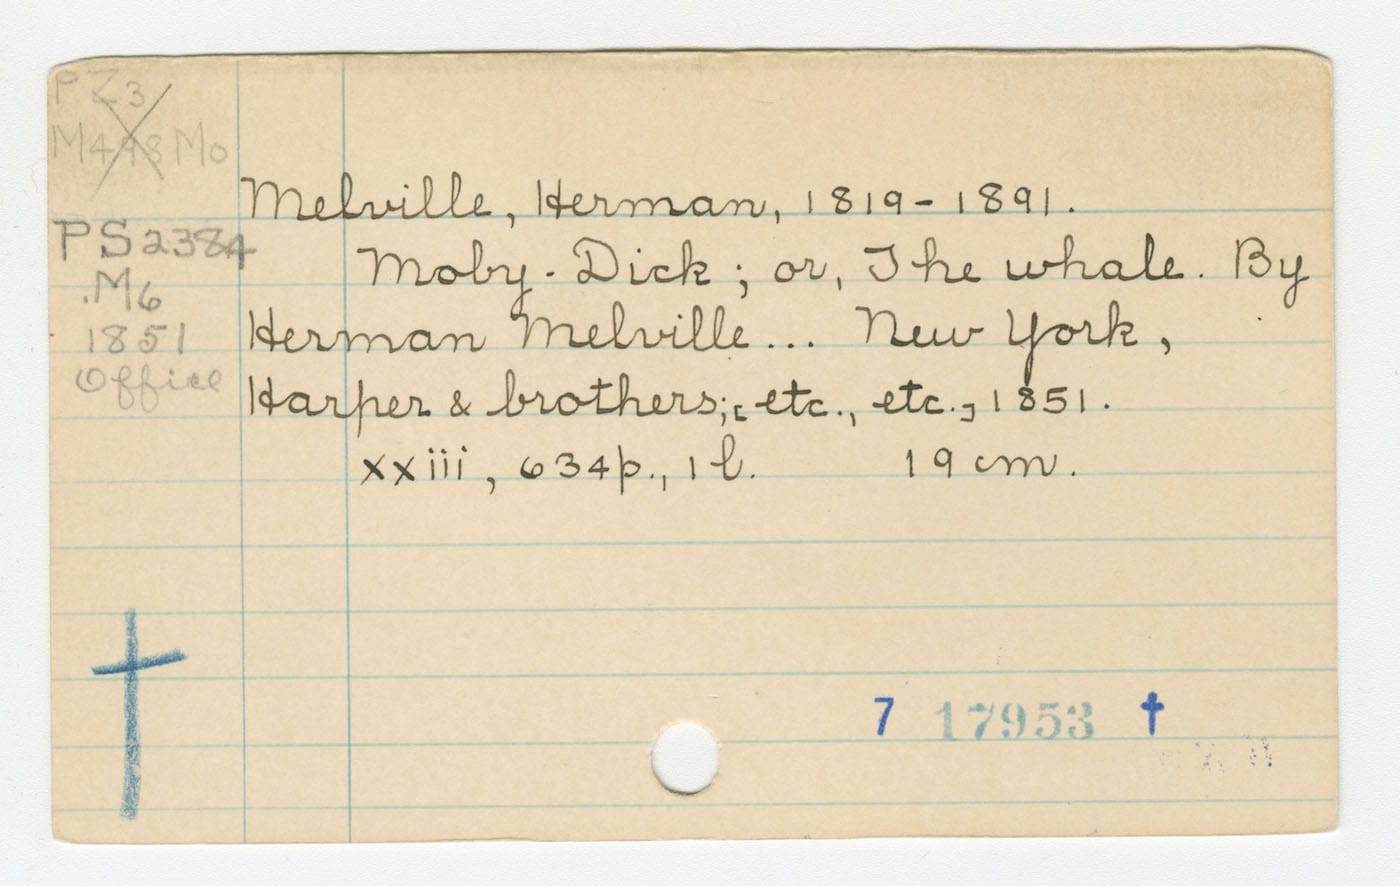 PZ3
M498Mo
Melville, Herman, 1819-1891.
PS2384
.M6
1851
Office
Moby-Dick; or, The whale. By
Herman Melville... New York,
Harper & brothers; [etc., etc.] 1851.
xxiii, 634p., 1 l. 19 cm.
7 17953 †